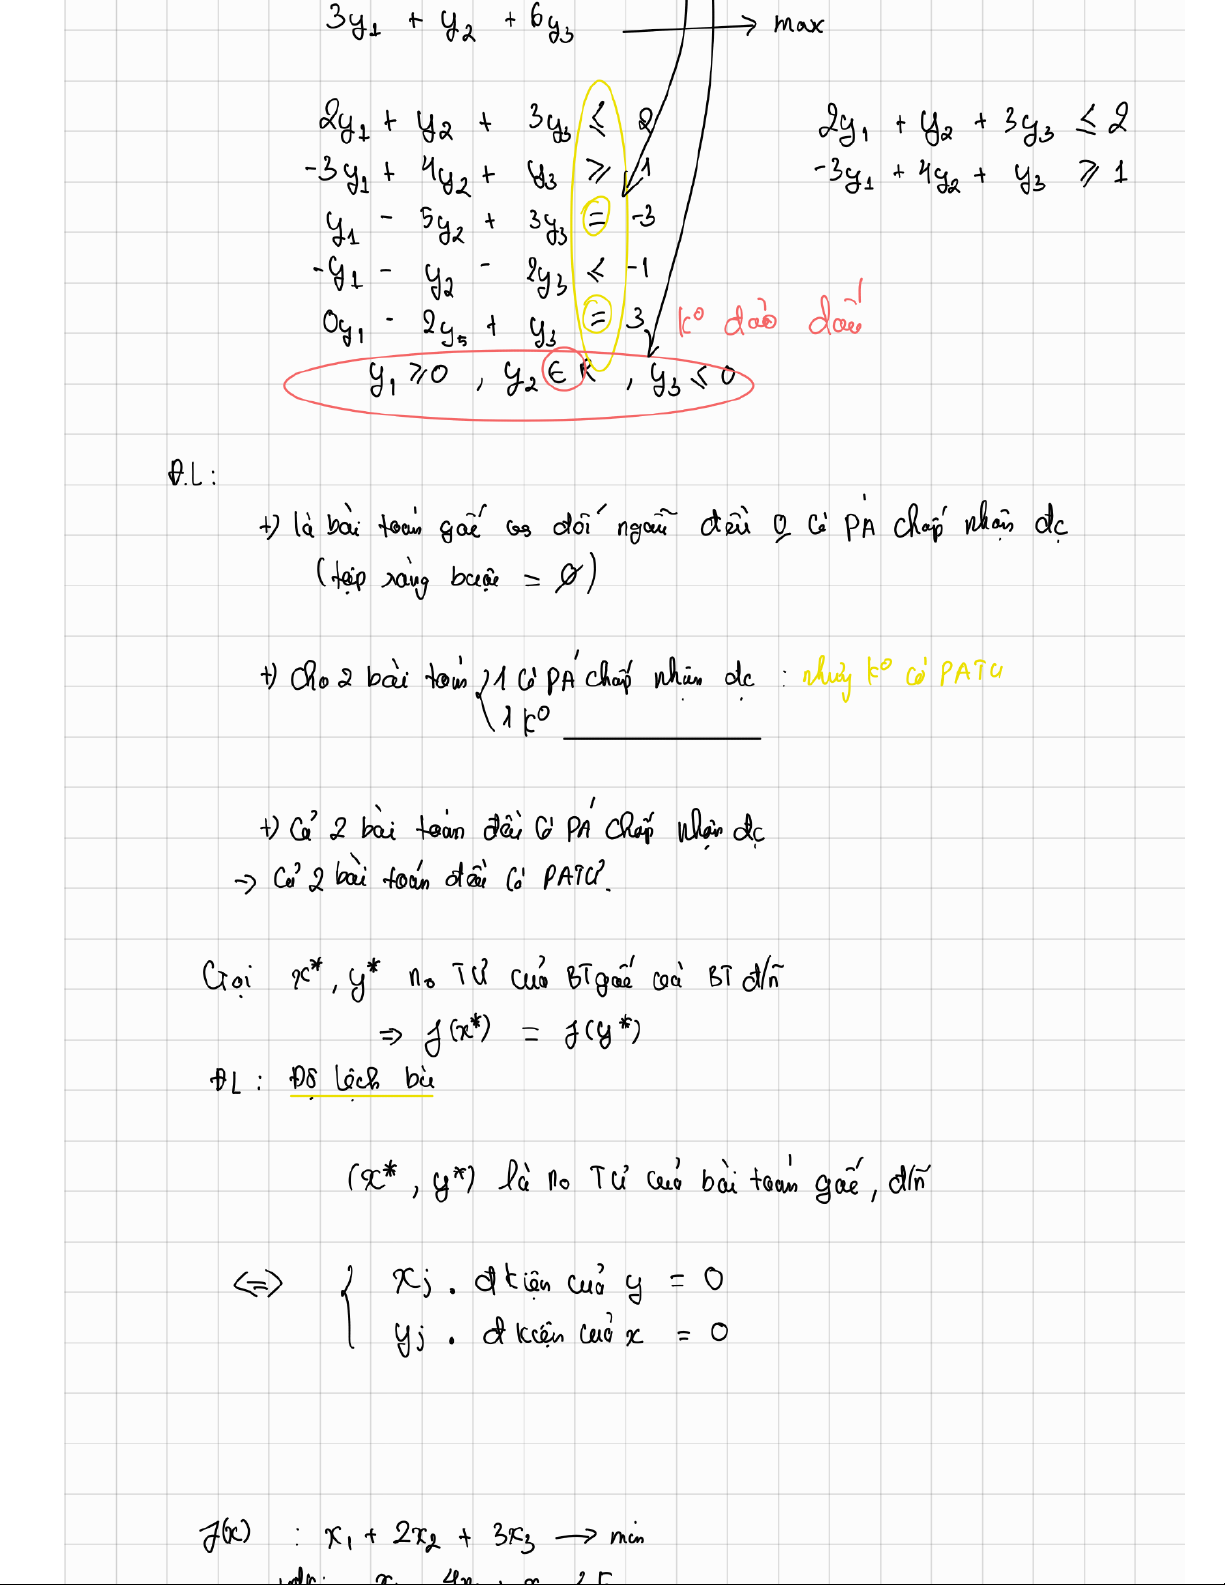 3y₁ + y₂ + 6y₃ → max
2y₁ + y₂ + 3y₃ ≤ 2    2y₁ + y₂ + 3y₃ ≤ 2
-3y₁ + 4y₂ + y₃ ≥ 1    -3y₁ + 4y₂ + y₃ ≥ 1
y₁ - 5y₂ + 3y₃ = -3
-y₁ - y₂ - 2y₃ ≤ -1
0y₁ - 2y₅ + y₃ = 3 k⁰ đảo dấu
y₁ ≥ 0 , y₂ ∈ R , y₃ ≤ 0
Đ.L :
+) là bài toán gốc đối ngẫu đều có PÁ chấp nhận đc
(tập ràng buộc = ∅)
+) Cho 2 bài toán { 1 có PÁ chấp nhận đc : nhưng k⁰ có PATƯ
1 k⁰
+) Cả 2 bài toán đều có PÁ chấp nhận đc
→ Cả 2 bài toán đều có PATƯ.
Gọi x*, y* no TƯ của BT gốc và BT đ/n
⇒ f(x*) = f(y*)
ĐL : Độ lệch bù
(x* , y*) là no TƯ của bài toán gốc, đ/n
⇔ { xj . đkiện của y = 0
yj . đkiện của x = 0
f(x) : x₁ + 2x₂ + 3x₃ → min